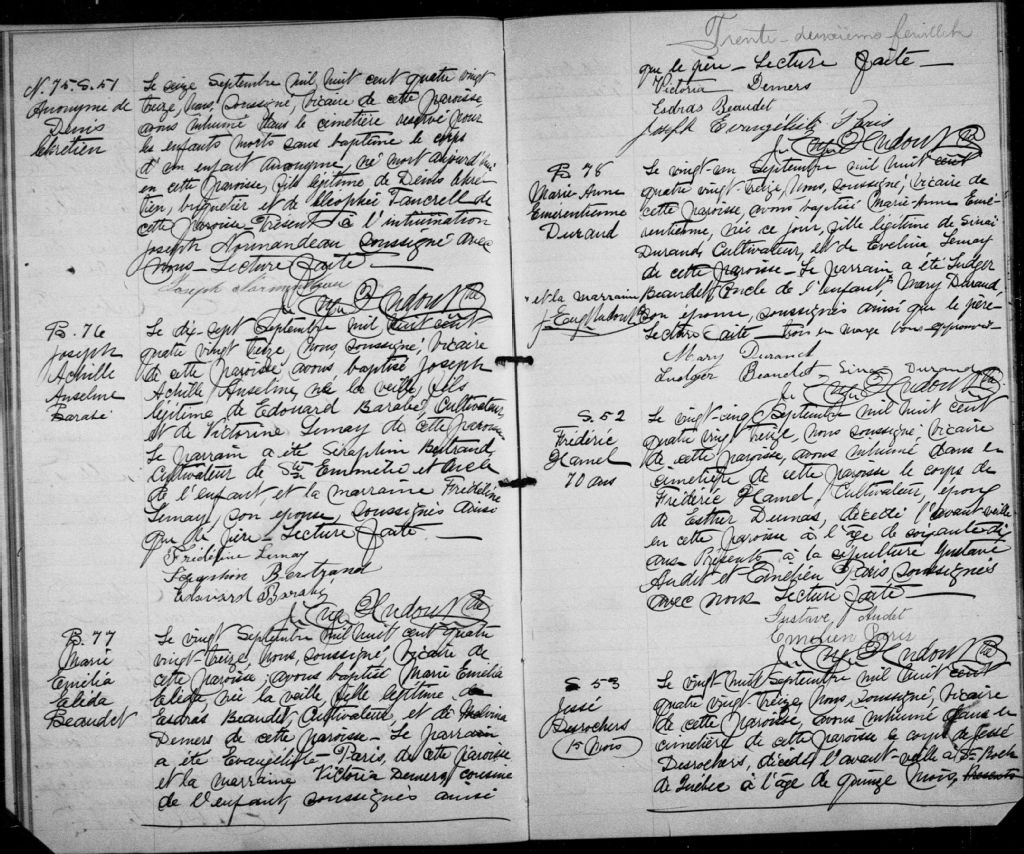 N. 75. S. 51
Anonyme de
Denis
Chrétien
Le seize Septembre mil huit cent quatre vingt
treize, nous, soussigné, vicaire de cette paroisse,
avons inhumé dans le cimetière reservé pour
les enfants morts sans baptême le corps
d'un enfant anonyme, né mort aujourd'hui
en cette paroisse, fils légitime de Denis Chré-
tien, briquetier et de Cléophée Fancrell de
cette paroisse – Présent à l'inhumation
Joseph Normandeau soussigné avec
nous – Lecture faite. —
Joseph Normandeau
B. 76
Joseph
Achille
Anseline
Barabé
Le dix-sept Septembre mil huit cent
quatre vingt treize, nous, soussigné, vicaire
de cette paroisse avons baptisé Joseph
Achille Anseline, né la veille, fils
légitime de Edouard Barabé, Cultivateur
et de Victorine Lemay de cette paroisse
Le parrain a été Séraphin Bertrand,
Cultivateur de Ste Emmélie et oncle
de l'enfant et la marraine Fridéline
Lemay, son épouse, soussignés ainsi
que le père – Lecture faite. —
Fridéline Lemay
Séraphin Bertrand
Edouard Barabé
B. 77
Marie
Emélia
Elida
Beaudet
Le vingt Septembre mil huit cent quatre
vingt-treize, nous, soussigné, vicaire de
cette paroisse, avons baptisé Marie Emélia
Elida, née la veille, fille légitime de
Esdras Beaudet, Cultivateur, et de Malvina
Demers de cette paroisse – Le parrain
a été Evangéliste Paris, de cette paroisse
et la marraine Victoria Demers, cousine
de l'enfant, soussignés ainsi
Trente-deuxième feuillet
que le père – Lecture faite —
Victoria Demers
Esdras Beaudet
Joseph Evangéliste Paris
B. 78
Marie-Anne
Emérentienne
Durand
Le vingt-un Septembre mil huit cent
quatre vingt-treize, nous, soussigné, vicaire de
cette paroisse, avons baptisé Marie-Anne Emé-
rentienne, née ce jour, fille légitime de Sinaï
Durand, Cultivateur, et de Evelina Lemay
de cette paroisse – Le parrain a été Ludger
et la marraine
Beaudet, oncle de l'enfant, Mary Durand,
son épouse, soussignés ainsi que le père
Lecture faite – trois en marge bons approuvés
Mary Durand
Ludger Beaudet Sinaï Durand
S. 52
Frédéric
Hamel
70 ans
Le vingt-cinq Septembre mil huit cent
quatre vingt treize, nous soussigné, vicaire
de cette paroisse, avons inhumé dans le
cimetière de cette paroisse le corps de
Frédéric Hamel, Cultivateur, époux
de Esther Dumas, décédé l'avant-veille
en cette paroisse à l'âge de soixante-dix
ans – Présents à la sépulture Gustave
Audet et Emélien Paris soussignés
avec nous Lecture faite —
Gustave Audet
Emélien Paris
S 53
Jessé
Desrochers
15 mois
Le vingt huit Septembre mil huit cent
quatre vingt treize, nous, soussigné, vicaire
de cette paroisse, avons inhumé dans le
cimetière de cette paroisse le corps de Jessé
Desrochers, décédé l'avant-veille à St. Roch
de Québec à l'âge de quinze mois, Présents